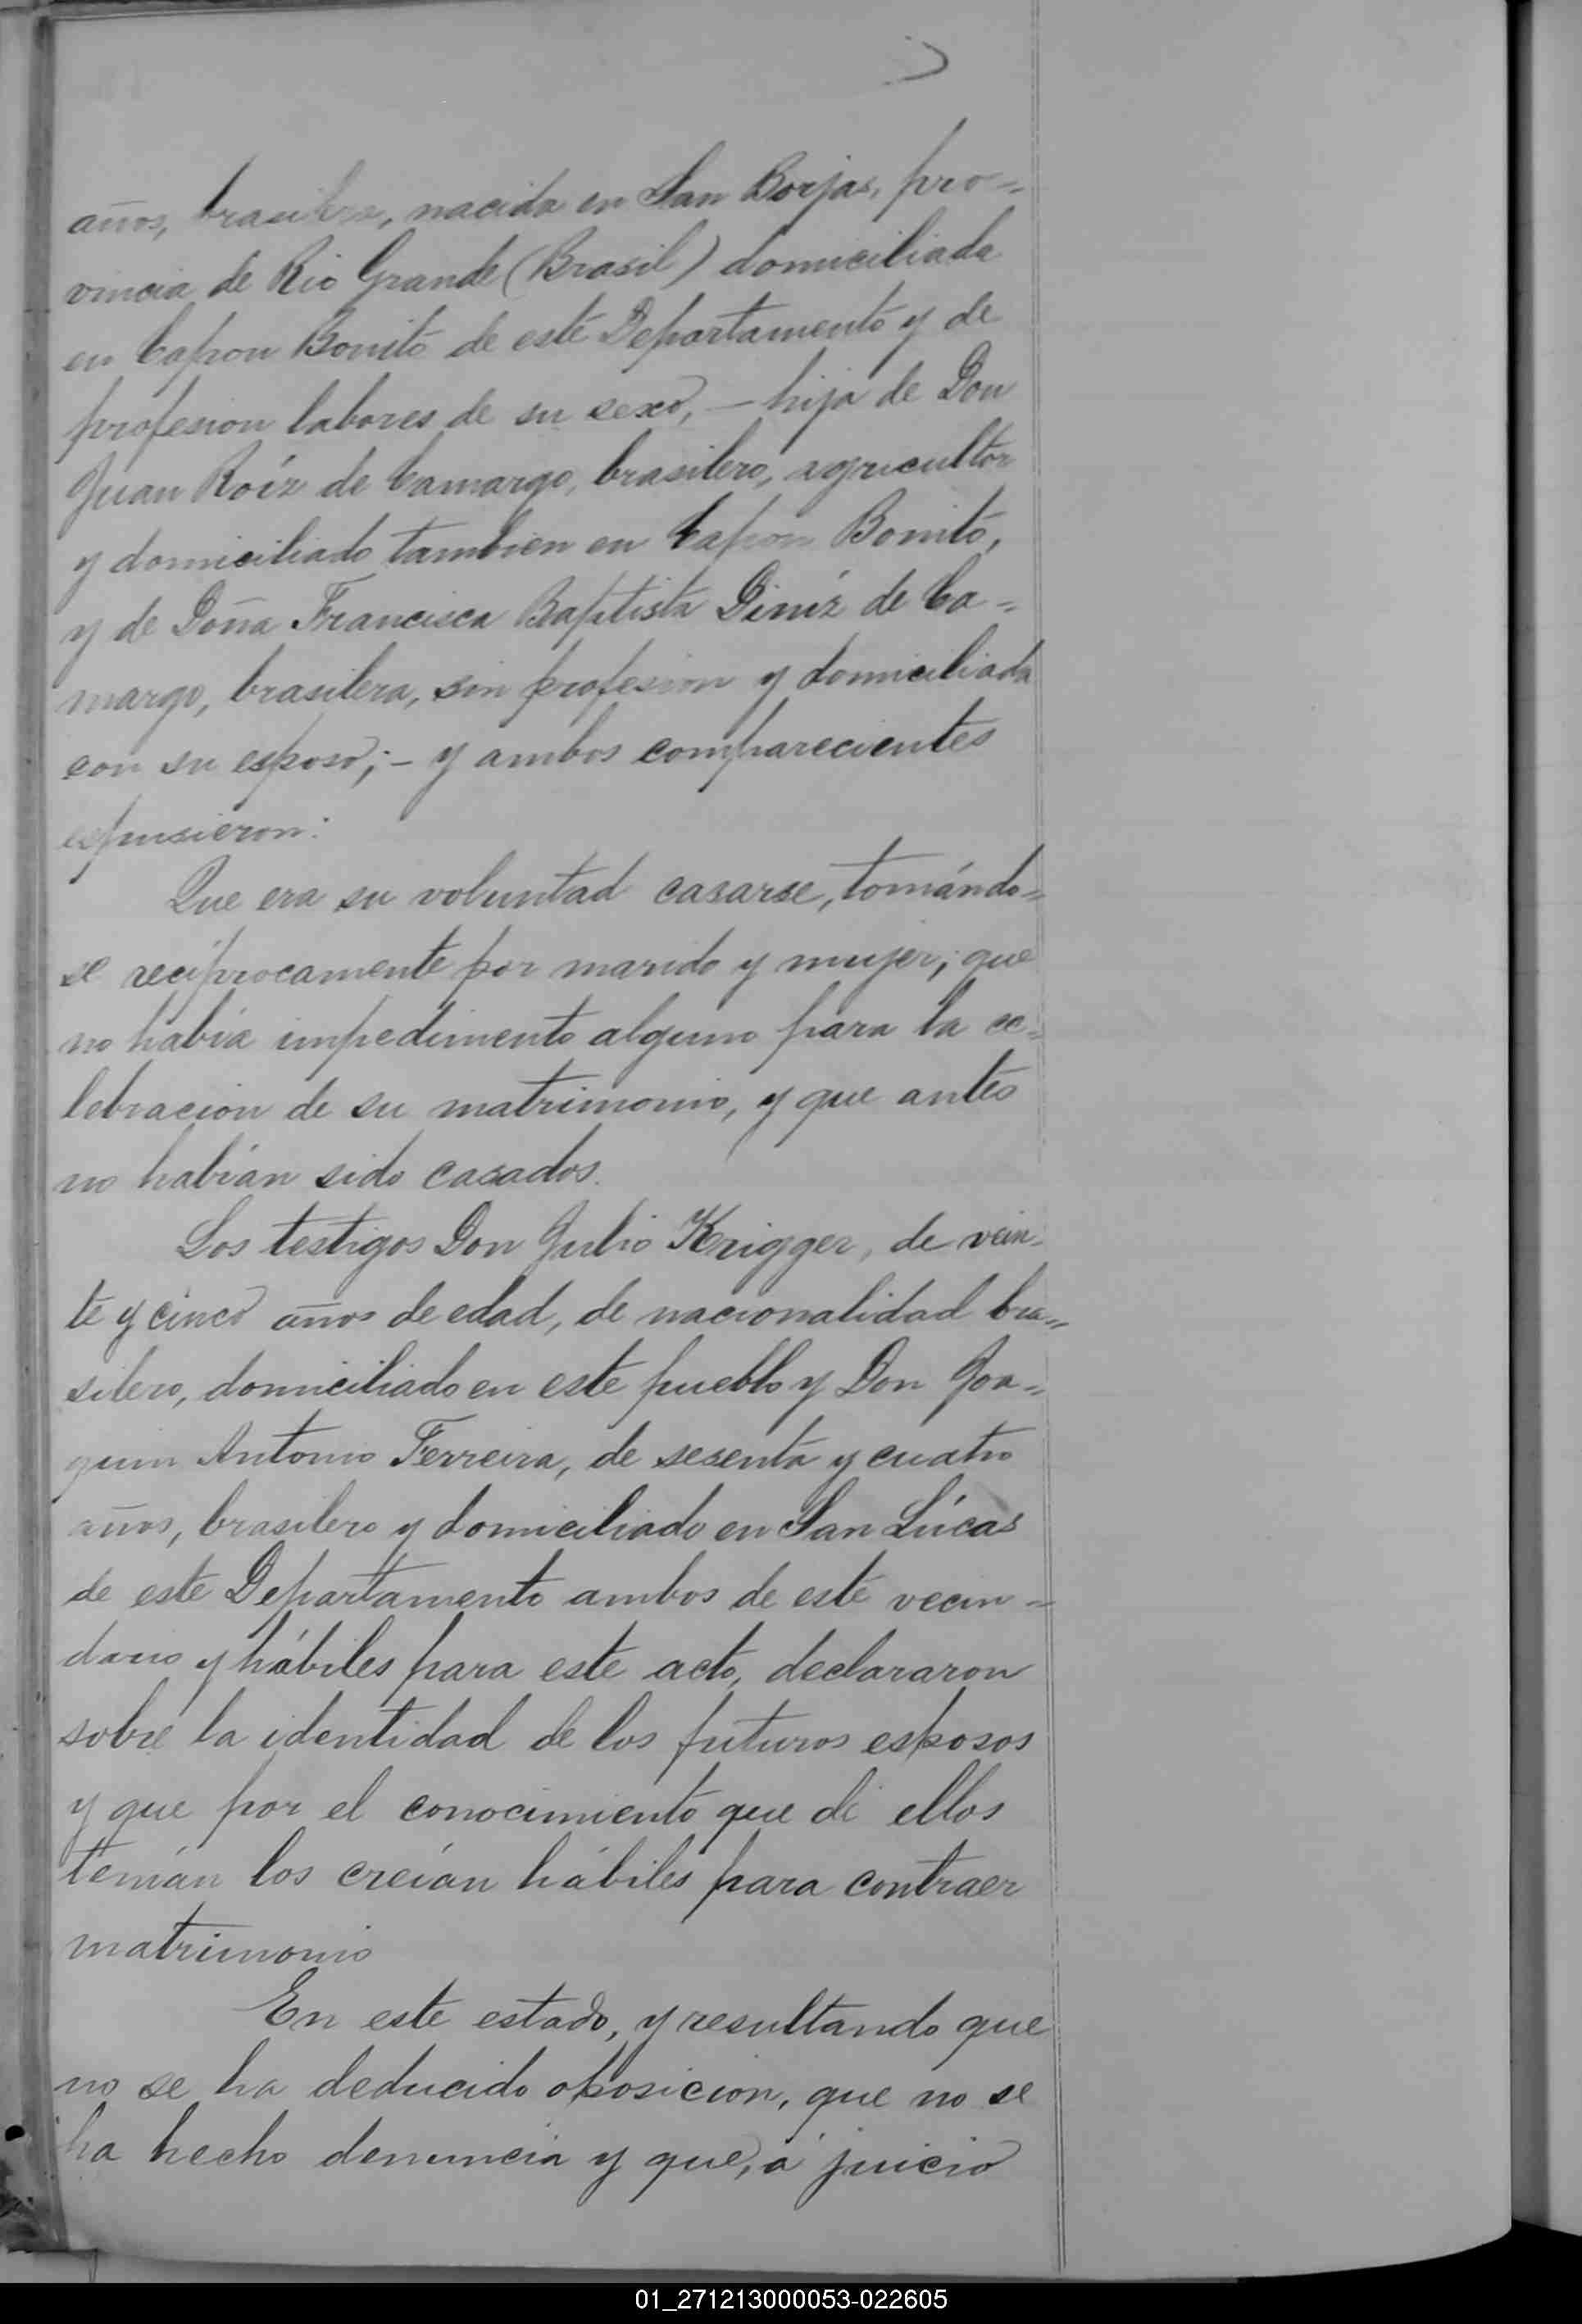 años, brasilera, nacida en San Borjas, pro=
vincia de Rio Grande (Brasil) domiciliada
en Capon Bonito de este Departamento y de
profesion labores de su sexo, — hija de Don
Juan Roiz de Camargo, brasilero, agricultor
y domiciliado tambien en Capon Bonito,
y de Doña Francisca Baptista Diniz de Ca=
margo, brasilera, sin profesion y domiciliada
con su esposo; – y ambos comparecientes
espusieron:
Que era su voluntad casarse, tomándo=
se recíprocamente por marido y mujer; que
no había impedimento alguno para la ce=
lebracion de su matrimonio, y que antes
no habían sido casados.
Los testigos Don Julio Krigger, de vein=
te y cinco años de edad, de nacionalidad bra=
silero, domiciliado en este pueblo y Don Joa=
quin Antonio Ferreira, de sesenta y cuatro
años, brasilero y domiciliado en San Lúcas
de este Departamento ambos de este vecin=
dario y hábiles para este acto, declararon
sobre la identidad de los futuros esposos
y que por el conocimiento que de ellos
tenían los creían hábiles para contraer
matrimonio
En este estado, y resultando que
no se ha deducido oposicion, que no se
ha hecho denuncia y que, á juicio
01_271213000053-022605